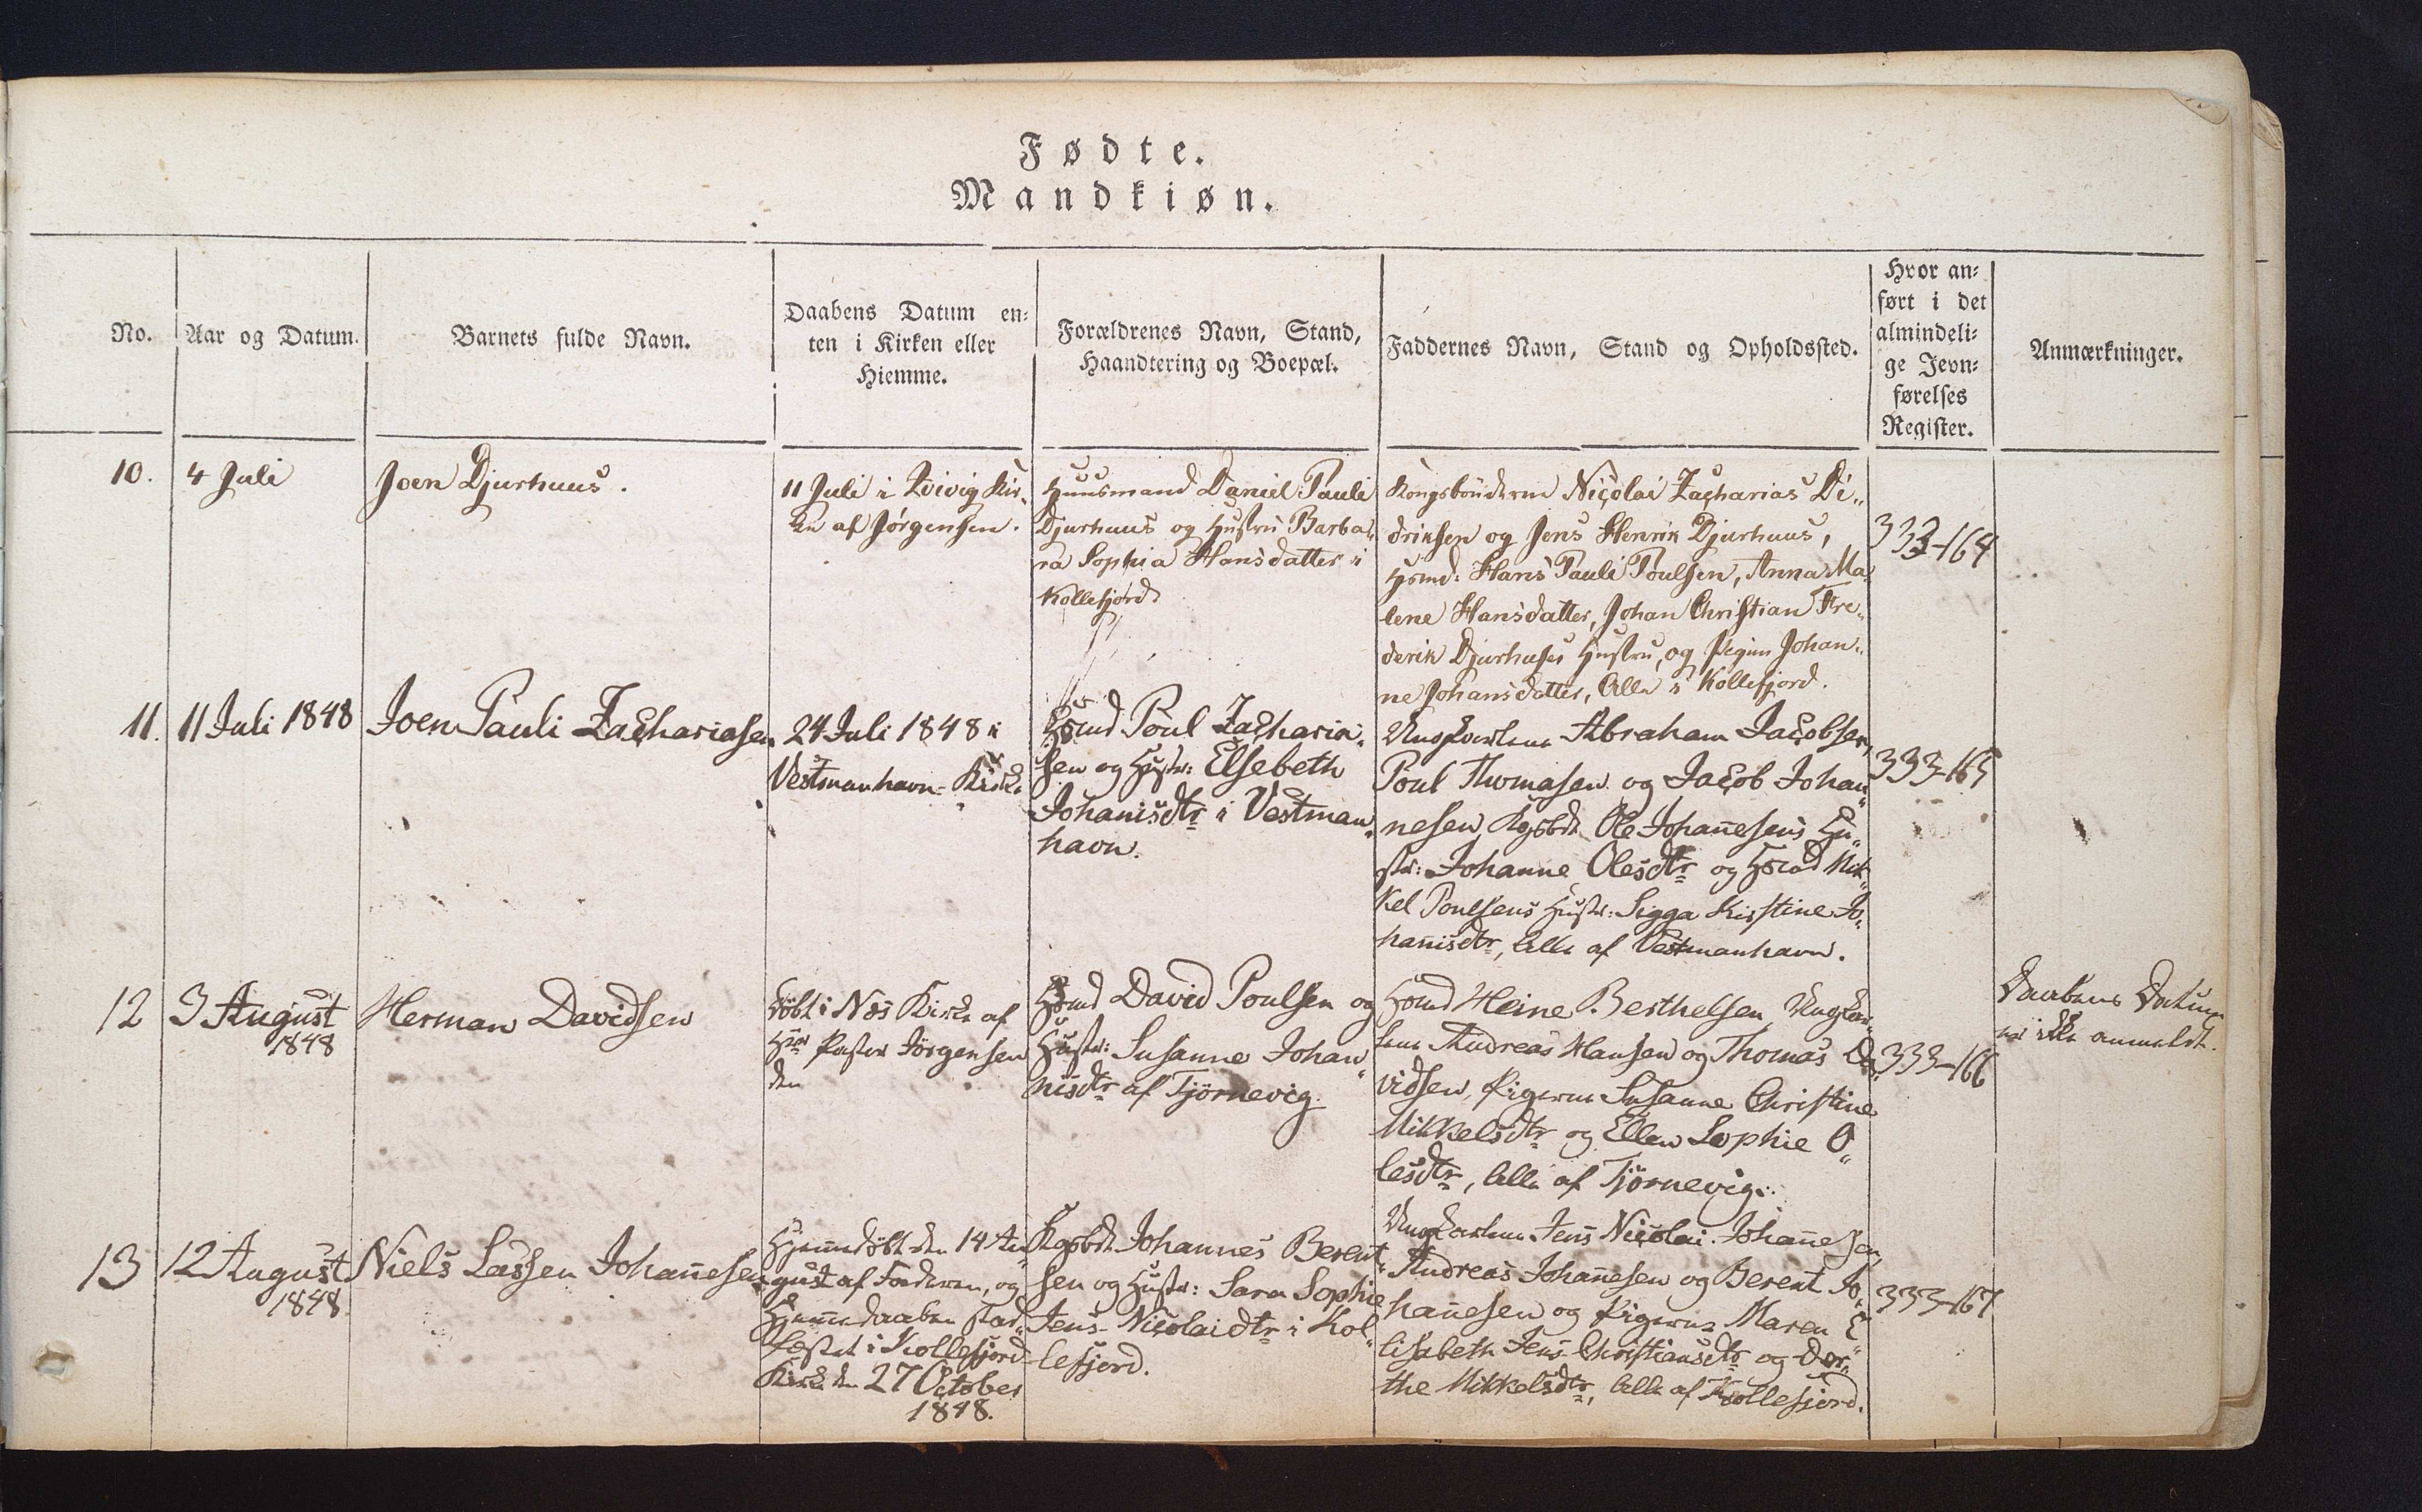 Fødte.
Mandkiøn.
No.
Aar og Datum.
Barnets fulde Navn.
Daabens Datum en=
ten i Kirken eller
Hiemme.
Forældrenes Navn, Stand,
Haandtering og Boepæl.
Faddernes Navn, Stand og Opholdssted.
Hvor an=
ført i det
almindeli=
ge Jevn=
førelses
Register.
Anmærkninger.
10.
4 Juli
Joen Djurhuus.
11 Juli i Qvivig Kir„
ke af Jørgensen.
Huusmand Daniel Pauli
Djurhuus og Hustru Barba„
ra Sophia Hansdatter i
Kollefjord
Kongsbønderne Nicolai Zacharias Di„
driksen og Jens Henrik Djurhuus,
Hsmd: Hans Pauli Poulsen, Anna Ma„
lene Hansdatter, Johan Christian Fre„
derik Djurhuses Hustru, og Pigen Johan„
ne Johansdatter, Alle i Kollefjord.
333-164
11.
11 Juli 1848
Joen Pauli Zachariasen
24 Juli 1848 i
Vestmanhavn= Kirke
Hsmd Poul Zacharia„
sen og Hustr: Elsebeth
Johanisdtr i Vestman„
havn.
Ungkarlene Abraham Jacobsen,
Poul Thomasen og Jacob Johan„
nesen, Kgsbdr Ole Johannesens Hu„
str: Johanne Olesdtr og Hsmd Mik„
kel Poulsens Hustr: Sigga Kirstine Jo„
hannisdtr, Alle af Vestmanhavn.
333-165
12
3 August
1848
Herman Davidsen
Døbt i Næs Kirke af
Hr Pastor Jörgensen
den
Hsmd David Poulsen og
Hustr: Susanne Johan„
nisdtr af Tjörnevig.
Hsmd Heine Berthelsen, Ungkar„
lene Andreas Hansen og Thomas Da„
vidsen, Pigerne Susanne Christine
Mikkelsdtr og Ellen Sophie O„
lesdtr, Alle af Tjörnevig.
333-166
Daabens Datum
er ikke anmeldt.
13
12 August
1848.
Niels Lassen Johannesen
Hjemmedöbt den 14 Au„
gust af Faderen, og
Hjemmedaaben stad„
fæstet i Kollefjord
Kirke den 27 October
1848.
Kgsbdr Johannes Berent„
sen og Hustr: Sara Sophie
Jens-Nicolaidtr i Kol„
lefjord.
Ungkarlene Jens Nicolai Johannesen,
Andreas Johannesen og Berent Jo„
hannesen og Pigerne Maren E„
lisabeth Jens-Christiansdtr og Dor„
the Mikkelsdtr, Alle af Kollefjord.
333-167